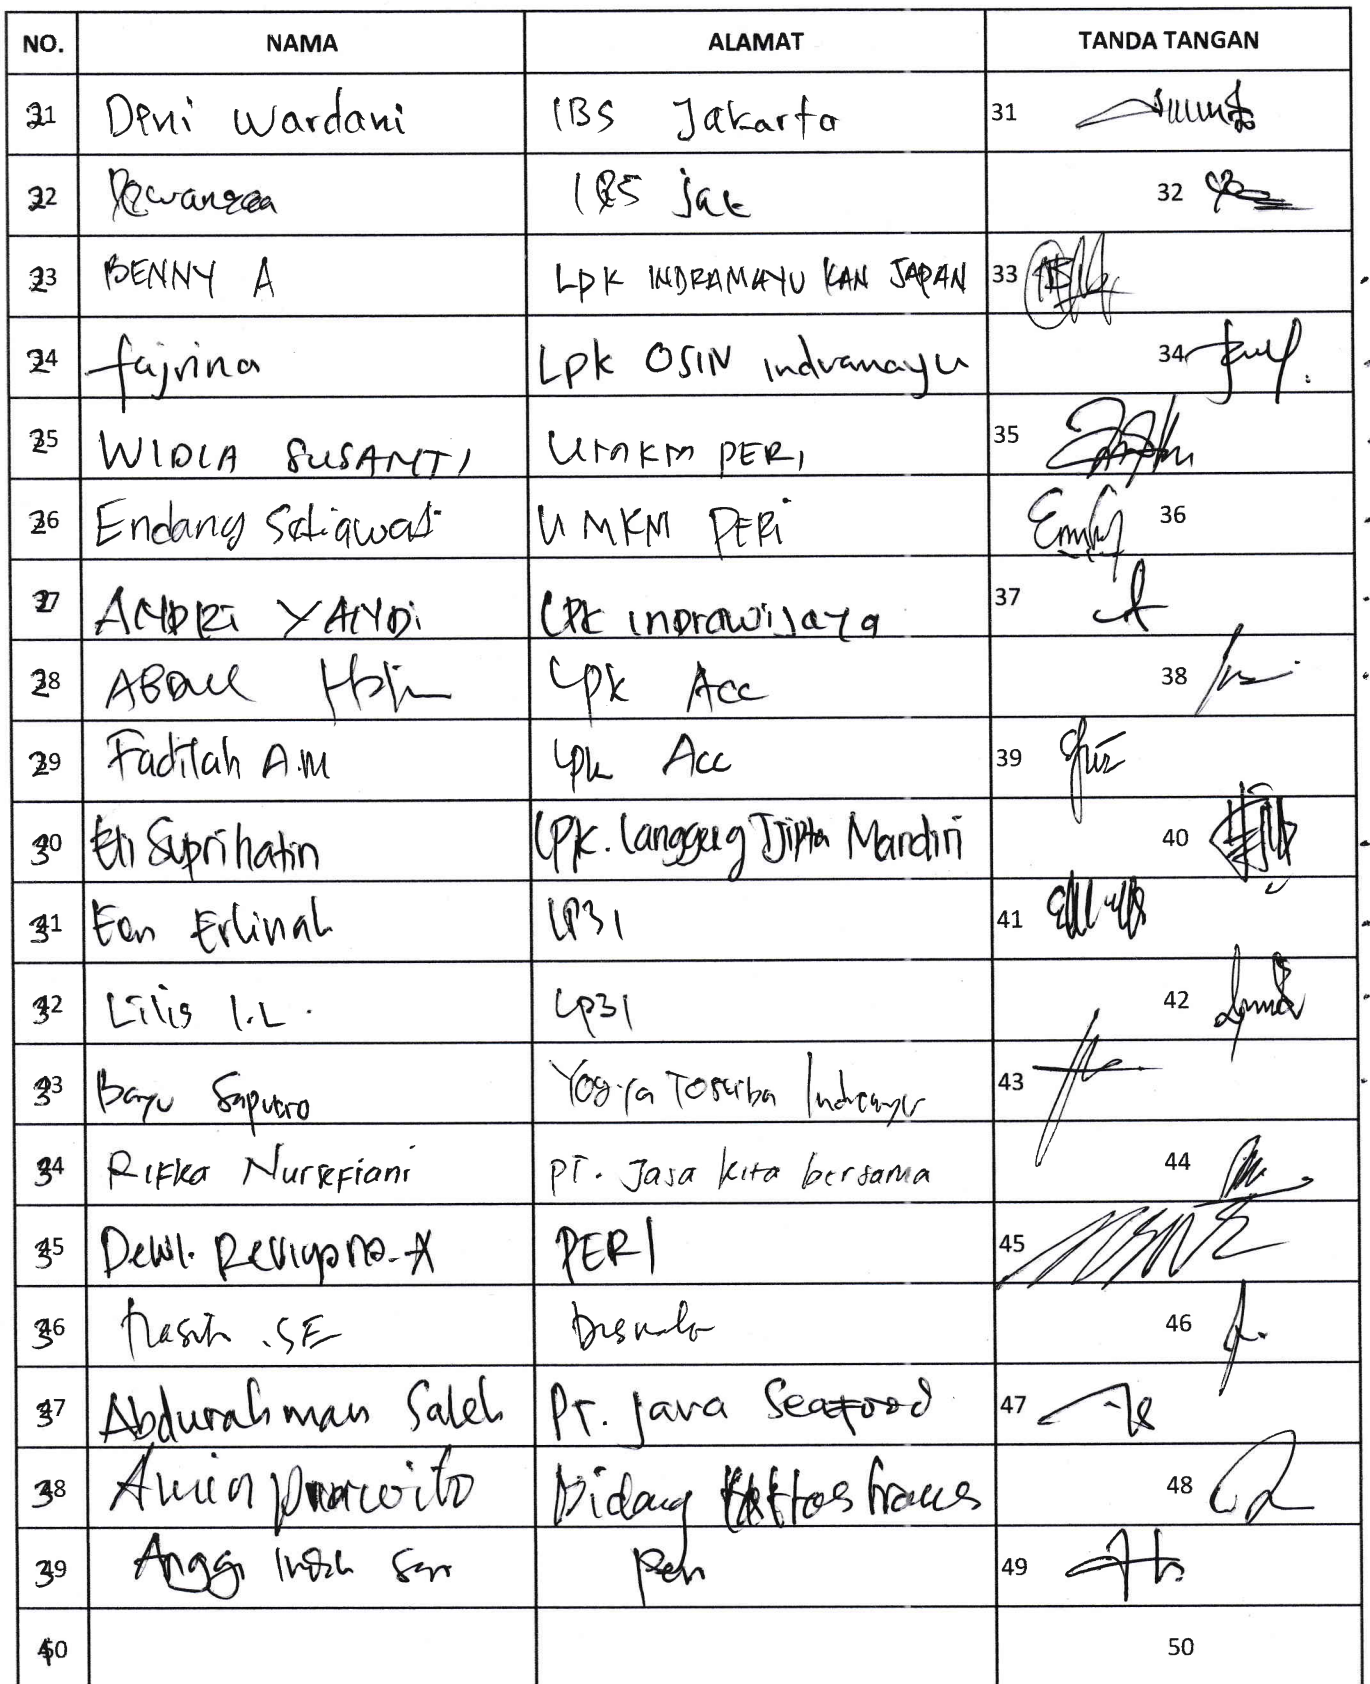 NO. NAMA ALAMAT TANDA TANGAN
21 Deni Wardani IBS Jakarta 31
22 IBS Jak 32
23 BENNY A LPK INDRAMAYU KAN JAPAN 33
24 fajrina LPK OSIN indramayu 34
25 WIDIA SUSANTI UMKM PERI 35
26 Endang Setiawati UMKM PERi 36
27 ANDRi YANDi LPK inDrawijaya 37
28 ABDUL LPK Acc 38
29 Fadilah A.M LPK Acc 39
30 Eli Suprihatin LPK. Langgeng Tjipta Mandiri 40
31 Een Erlinah LP3I 41
32 Lilis I.L. LP3I 42
33 Bayu Saputro Yogya Toserba Indramayu 43
34 Rifka Nurrefiani PT. Jasa kita bersama 44
35 Dewi. Reviyana. A PERI 45
36 .SE 46
37 Abdurahman Saleh PT. Java Seafood 47
38 Amin Purwoito Bidang 48
39 Anggi Indah Sari Peri 49
40 50